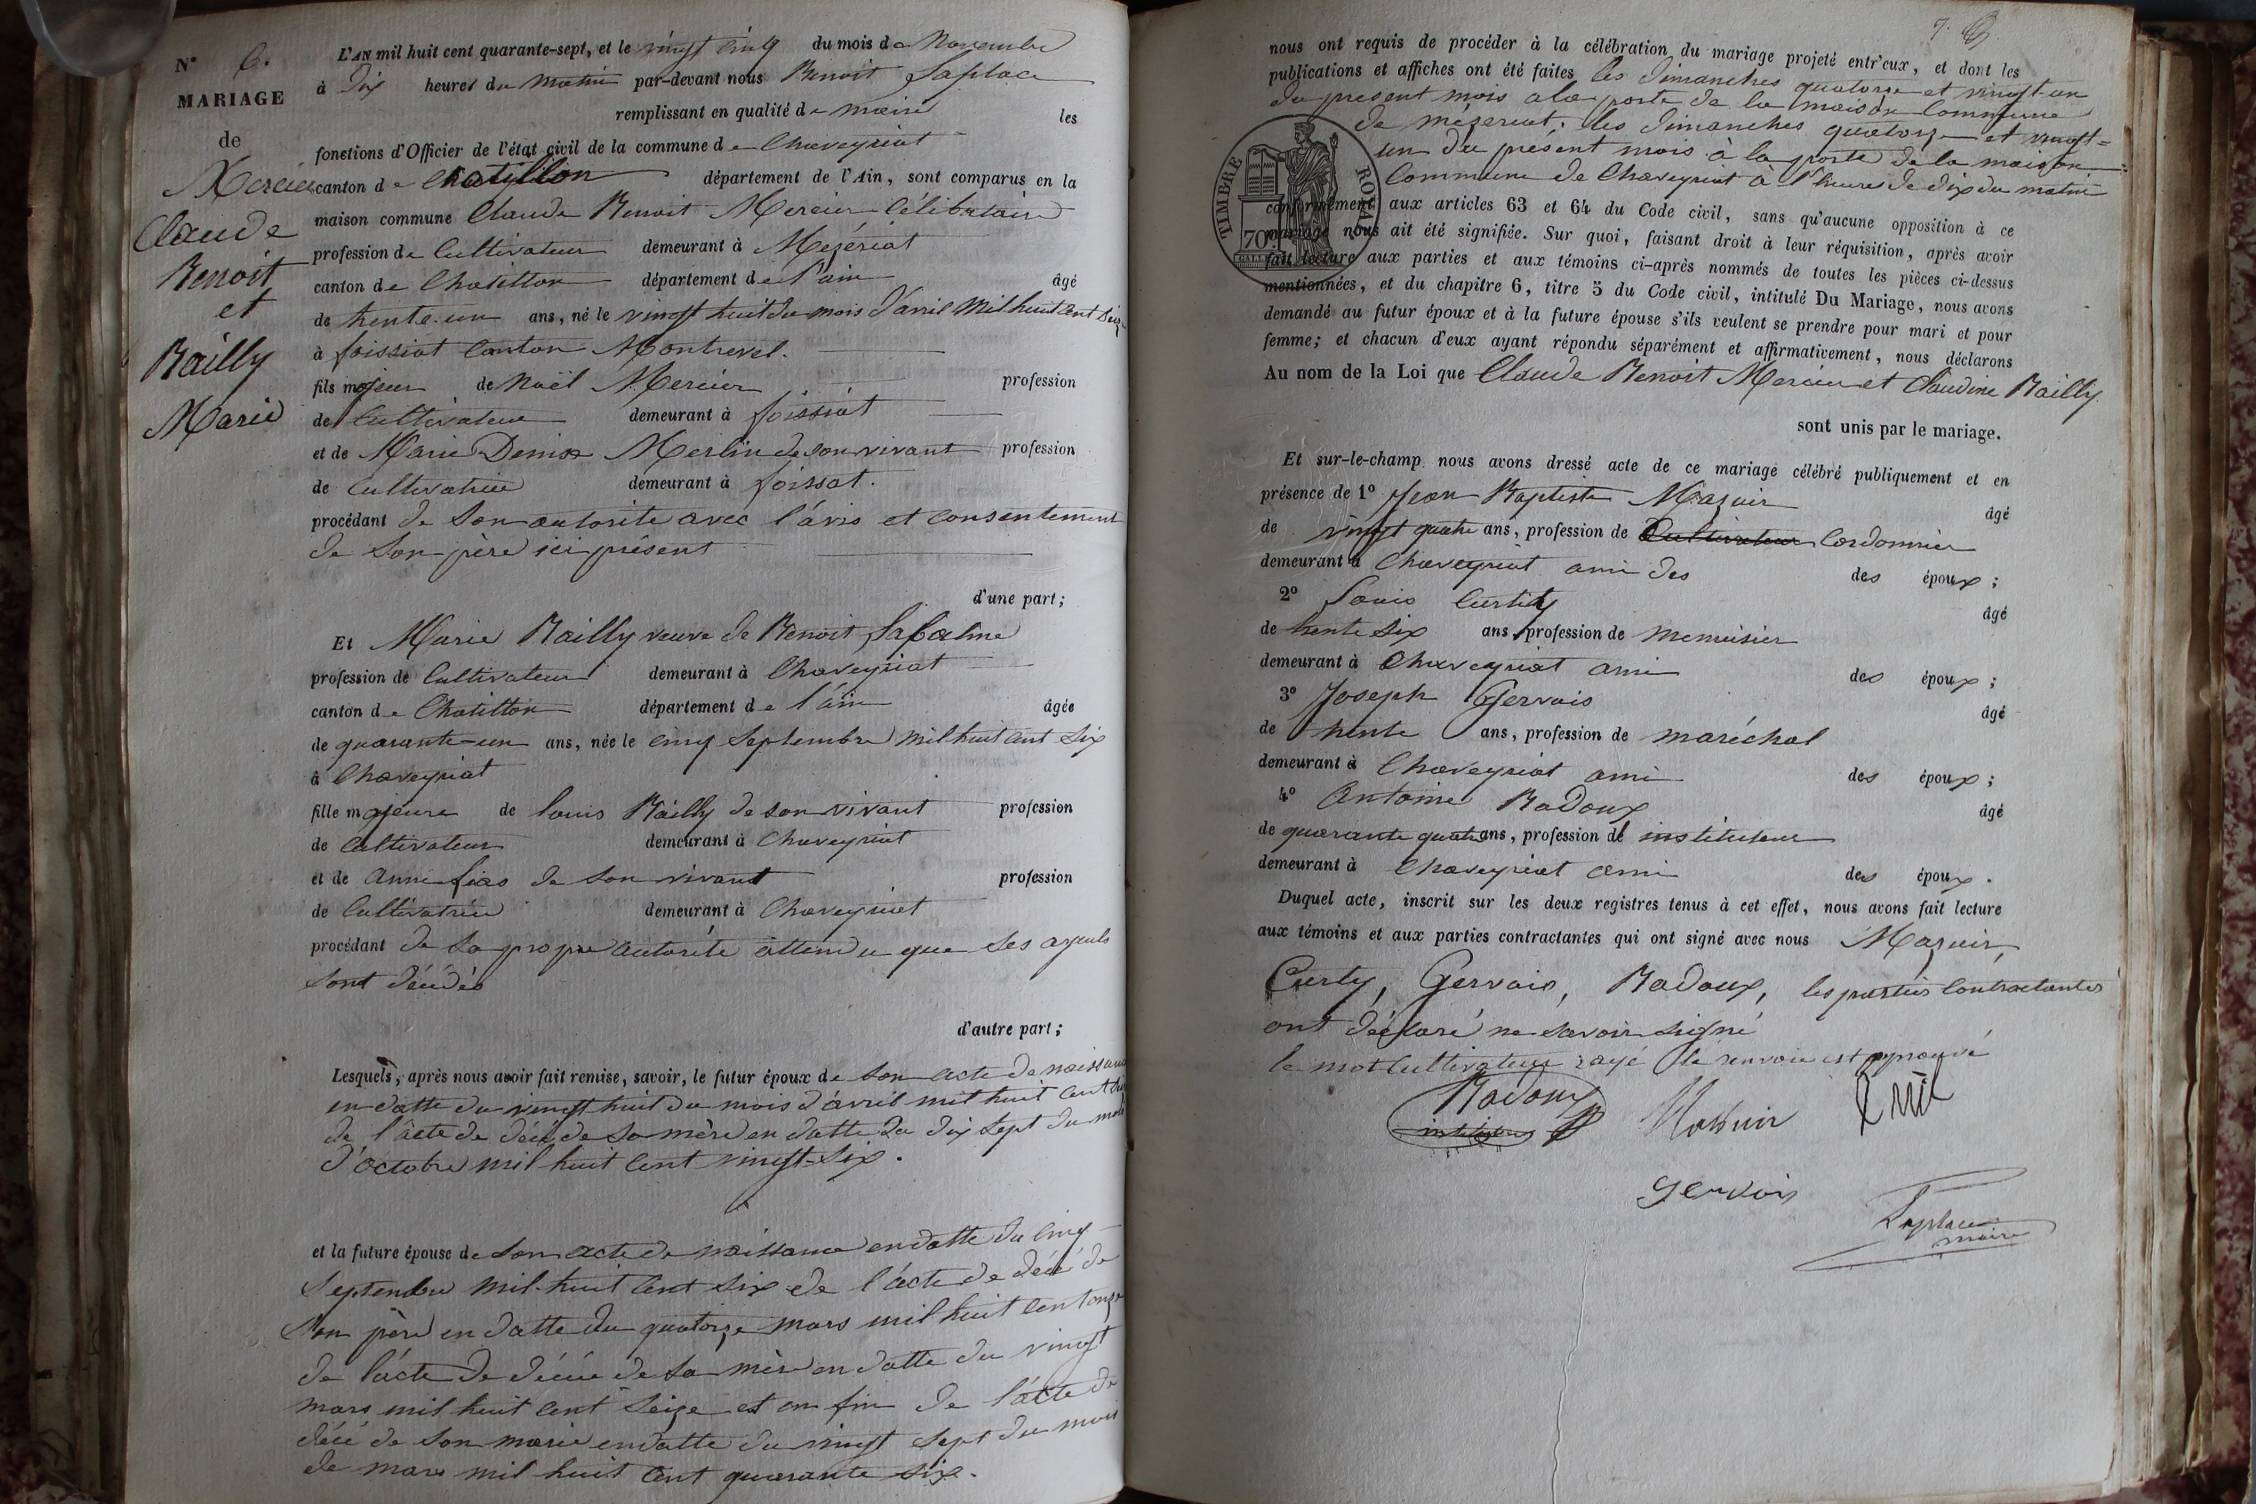 N° 6.
MARIAGE
de
Mercier
Claude
Benoit
et
Bailly
Marie
L'AN mil huit cent quarante-sept, et le vingt cinq du mois de Novembre
à Dix heures du matin par-devant nous Benoit Laplace
remplissant en qualité de maire les
fonctions d'Officier de l'état civil de la commune de Chaveyriat
canton de Chatillon département de l'Ain, sont comparus en la
maison commune Claude Benoit Mercier Célibataire
profession de Cultivateur demeurant à Mézériat
canton de Chatillon département de l'ain âgé
de trente-un ans, né le vingt huit du mois d'avril mil huit cent seize
à foissiat canton Montrevel.
fils majeur de Noël Mercier profession
de Cultivateur demeurant à foissiat
et de Marie Denise Merlin de son vivant profession
de Cultivatrice demeurant à foissat.
procédant de son autorité avec l'avis et consentement
de son père ici présent
d'une part;
Et Marie Bailly veuve de Benoit Labalme
profession de Cultivateur demeurant à Chaveyriat
canton de Chatillon département de l'ain âgée
de quarante-un ans, née le cinq Septembre mil huit cent six
à Chaveyriat
fille majeure de Louis Bailly de son vivant profession
de Cultivateur demeurant à Chaveyriat
et de anne de son vivant profession
de Cultivatrice demeurant à Chaveyriat
procédant de sa propre autorité attendu que ses ayeuls
sont décédés
d'autre part;
Lesquels, après nous avoir fait remise, savoir, le futur époux de son acte de naissance
en datte du vingt huit du mois d'avril mil huit cent
de l'acte de décé de sa mère en datte du dix sept du mois
d'octobre mil huit cent vingt-six.
et la future épouse de son acte de naissance en datte du cinq
Septembre mil-huit cent six de l'acte de décé de
son père en datte du quatorze mars mil huit cent onze
de l'acte de décée de sa mère en datte du vingt
mars mil huit cent seize et en fin de l'acte de
décé de son marie en datte du vingt sept du mois
de mars mil huit cent quarante six.
7.
nous ont requis de procéder à la célébration du mariage projeté entr'eux, et dont les
publications et affiches ont été faites les dimanches quatorze et vingt-un
du présent mois a la porte de la maison Commune
de mézeriat; les dimanches quatorze et vingt-
un du présent mois à la porte de la maison
Commune de Chaveyriat à l'heure de dix du matin
TIMBRE ROYAL
70
conformément aux articles 63 et 64 du Code civil, sans qu'aucune opposition à ce
mariage nous ait été signifiée. Sur quoi, faisant droit à leur réquisition, après avoir
fait lecture aux parties et aux témoins ci-après nommés de toutes les pièces ci-dessus
mentionnées, et du chapitre 6, titre 5 du Code civil, intitulé Du Mariage, nous avons
demandé au futur époux et à la future épouse s'ils veulent se prendre pour mari et pour
femme; et chacun d'eux ayant répondu séparément et affirmativement, nous déclarons
Au nom de la Loi que Claude Benoit Mercier et Claudine Bailly
sont unis par le mariage.
Et sur-le-champ nous avons dressé acte de ce mariage célébré publiquement et en
présence de 1° Jean Baptiste Mazuir âgé
de vingt quatre ans, profession de Cultivateur Cordonnier
demeurant à Chaveyriat ami des des époux;
2° Louis Curty âgé
de trente six ans, profession de menuisier
demeurant à Chaveyriat ami des époux;
3° Joseph Gervais âgé
de trente ans, profession de maréchal
demeurant à Chaveyriat ami des époux;
4° Antoine Badoux âgé
de quarante quatre ans, profession de instituteur
demeurant à Chaveyriat ami des époux.
Duquel acte, inscrit sur les deux registres tenus à cet effet, nous avons fait lecture
aux témoins et aux parties contractantes qui ont signé avec nous Mazuir,
Curty, Gervais, Badoux, les parties Contractantes
ont déclaré ne savoir signé
le mot Cultivateur rayé le renvoie est aprouvé
Badoux
instituteur
Gervais
Laplace
maire